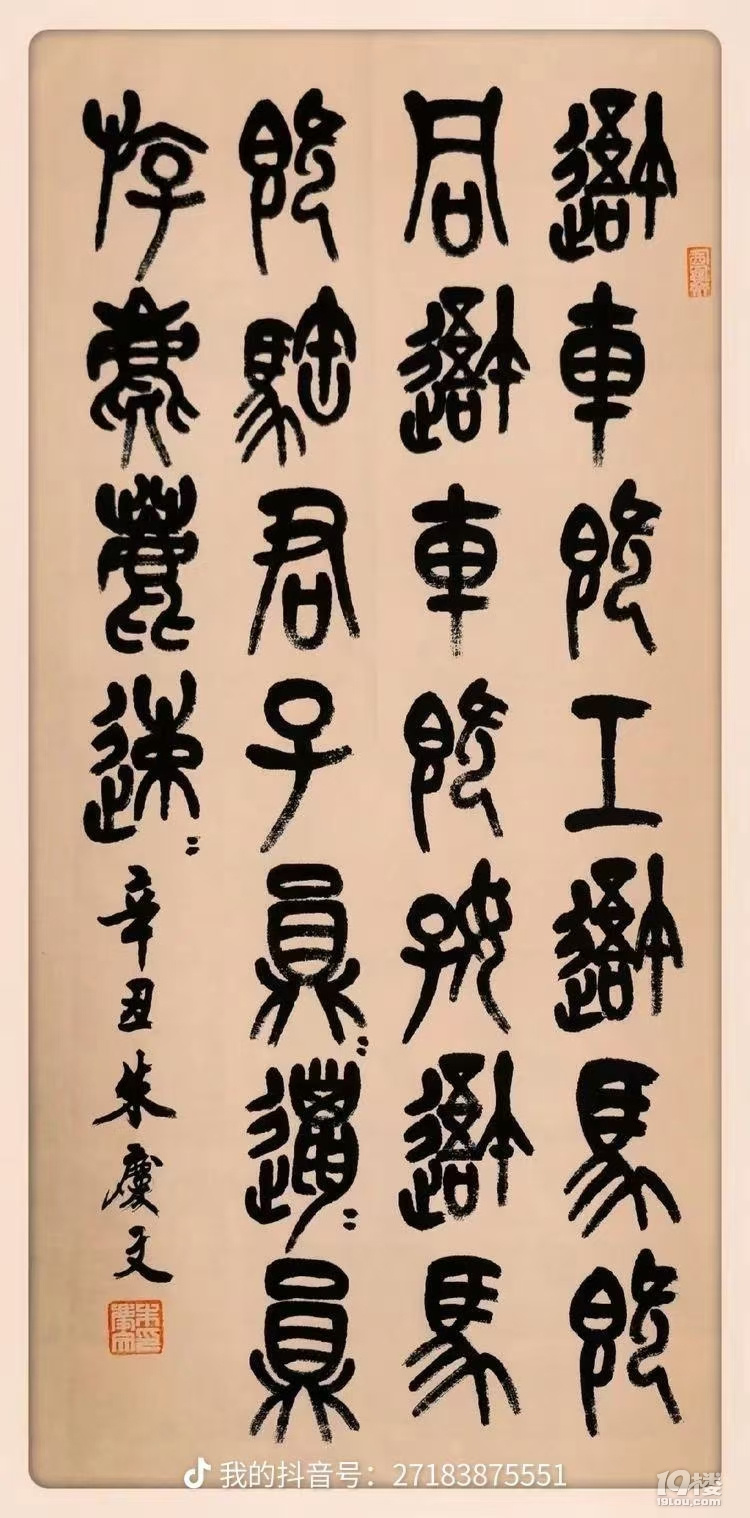 吾車既工吾馬既
同吾車既好吾馬
既𩣡君子員〻邋〻員
斿麀鹿速〻
辛丑朱慶文
我的抖音号：27183875551
19楼
19lou.com